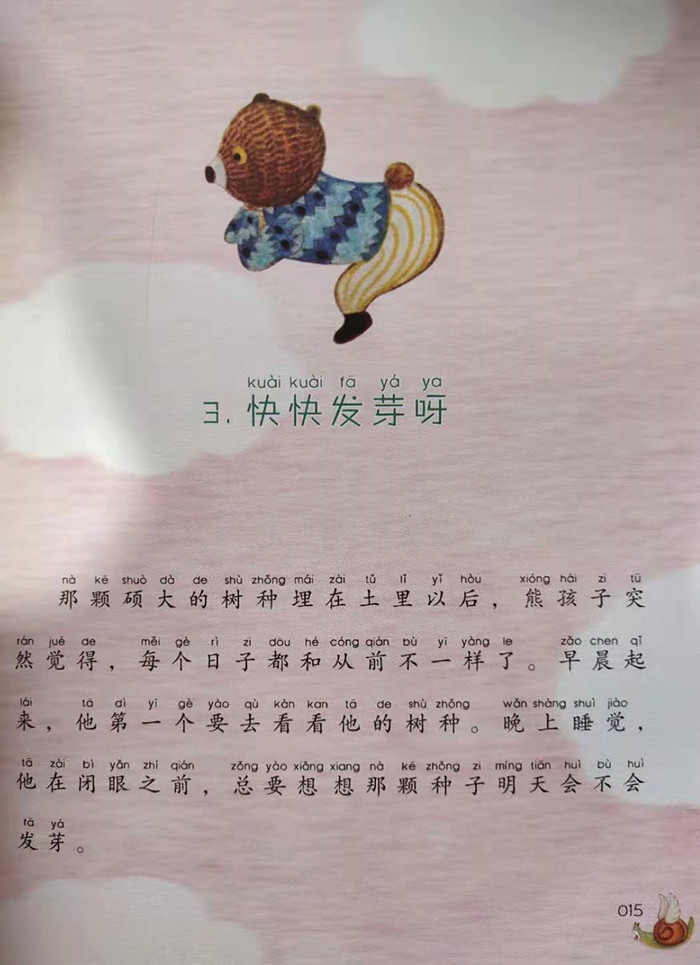 kuài kuài fā yá ya
3. 快快发芽呀
nà kē shuò dà de shù zhǒng mái zài tǔ lǐ yǐ hòu xióng hái zi tū
那颗硕大的树种埋在土里以后，熊孩子突
rán jué de měi gè rì zi dōu hé cóng qián bù yí yàng le zǎo chen qǐ
然觉得，每个日子都和从前不一样了。早晨起
lái tā dì yī gè yào qù kàn kan tā de shù zhǒng wǎn shàng shuì jiào
来，他第一个要去看看他的树种。晚上睡觉，
tā zài bì yǎn zhī qián zǒng yào xiǎng xiang nà kē zhǒng zi míng tiān huì bù huì
他在闭眼之前，总要想想那颗种子明天会不会
fā yá
发芽。
015